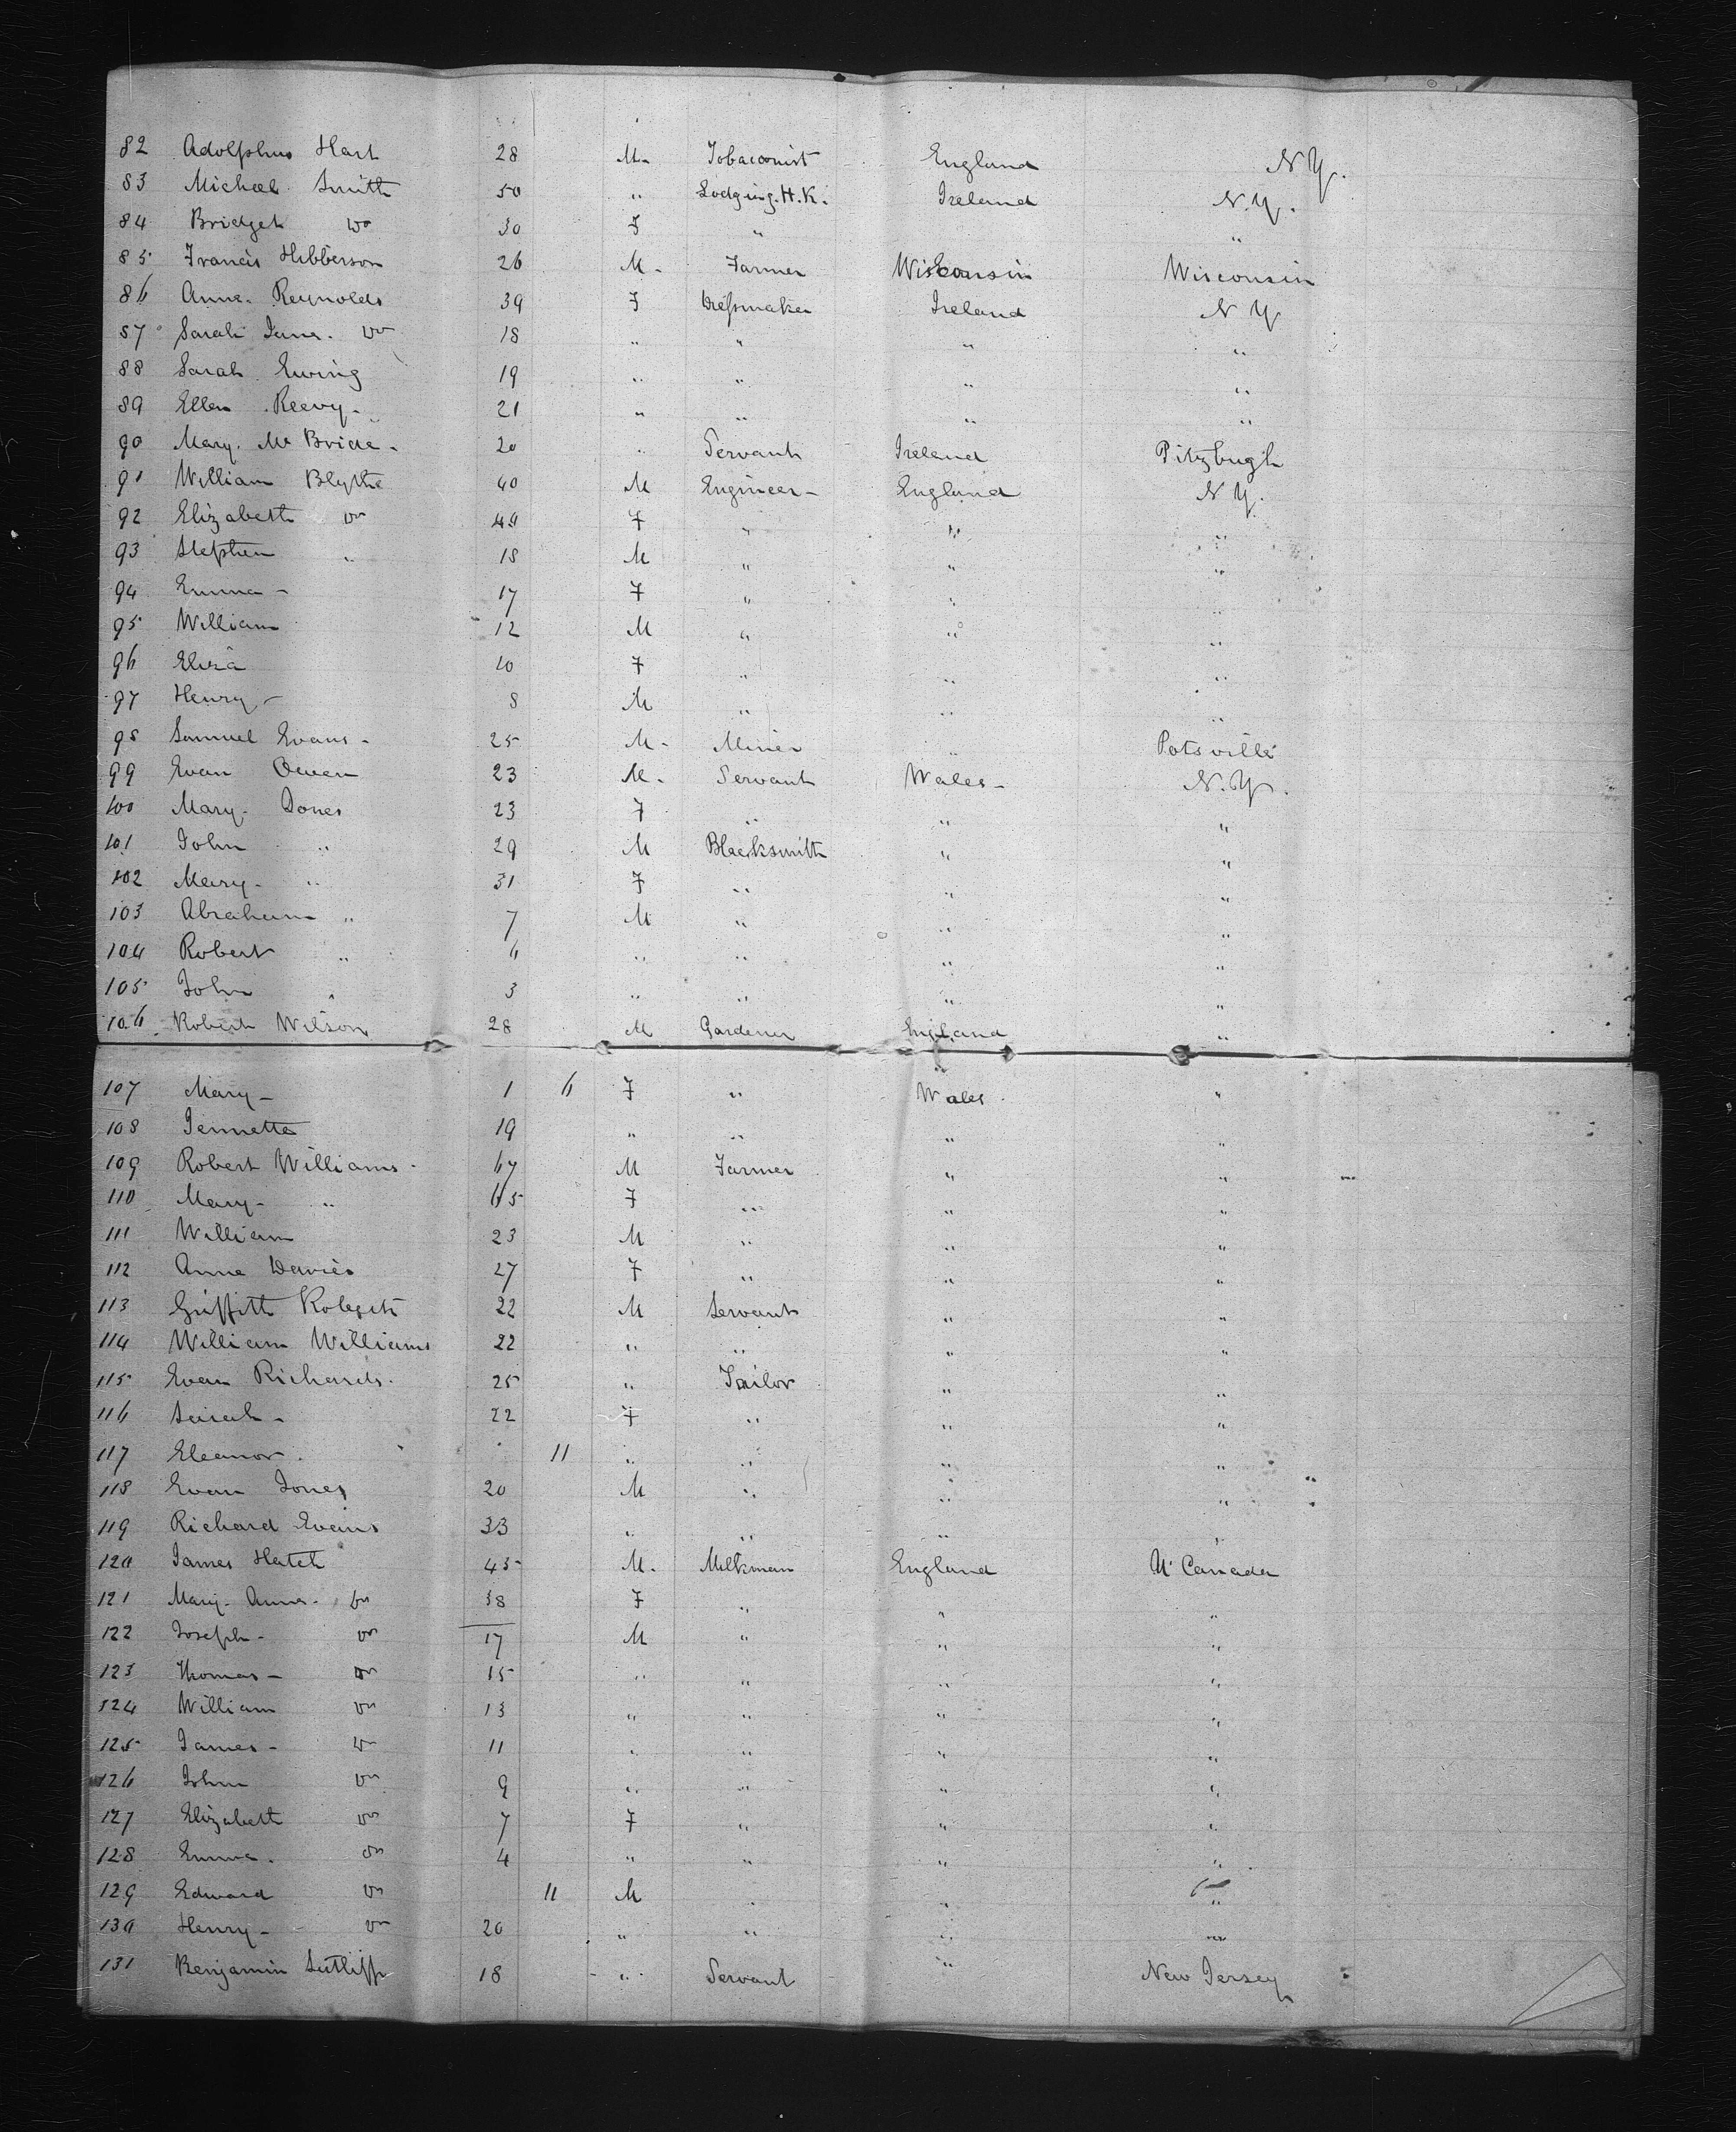 82 Adolphus Hart 28 M. Tobacconist England N.Y.
83 Michael Smith 50 " Lodging.H.K. Ireland N.Y.
84 Bridget Do 30 F " "
85 Francis Hibberson 26 M. Farmer Wisconsin Wisconsin
86 Anne Reynolds 39 F Dressmaker Ireland N Y
87 Sarah Jane Do 18 " " " "
88 Sarah Ewing 19 " " " "
89 Ellen Reevy 21 " " " "
90 Mary Mc Bride 20 " Servant Ireland Pitzbugh
91 William Blythe 40 M Engineer England N Y.
92 Elizabeth Do 40 F " " "
93 Stephen " 18 M " " "
94 Emma 17 F " " "
95 William 12 M " " "
96 Eliza 10 F " " "
97 Henry 8 M " " "
98 Samuel Evans 25 M. Miner " Potsville
99 Evan Owen 23 M. Servant Wales N.Y.
100 Mary Jones 23 F " " "
101 John " 29 M Blacksmith " "
102 Mary " 31 F " " "
103 Abraham " 7 M " " "
104 Robert " 6 " " " "
105 John " 3 " " " "
106 Robert Wilson 28 M Gardener England "
107 Mary 1 6 F " Wales "
108 Jennette 19 " " " "
109 Robert Williams 67 M Farmer " "
110 Mary " 65 F " " "
111 William 23 M " " "
112 Anne Davies 27 F " " "
113 Griffith Roberts 22 M Servant " "
114 William Williams 22 " " " "
115 Evan Richards 25 " Tailor " "
116 Sarah 22 F " " "
117 Eleanor 11 " " " "
118 Evan Jones 20 M " " "
119 Richard Evans 33 " " " "
120 James Hatch 45 M. Milkman England U Canada
121 Mary Anne Do 38 F " " "
122 Joseph Do 17 M " " "
123 Thomas Do 15 " " " "
124 William Do 13 " " " "
125 James Do 11 " " " "
126 John Do 9 " " " "
127 Elizabeth Do 7 F " " "
128 Emma Do 4 " " " "
129 Edward Do 11 M " " "
130 Henry Do 20 " " " "
131 Benjamin Sutliff 18 " Servant " New Jersey